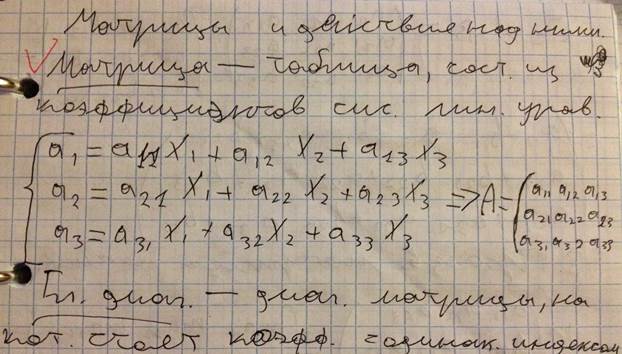 Матрицы и действие над ними.
Матрица — таблица, сост. из
коэффициэктов сис. лин. урав.
a₁ = a₁₁ X₁ + a₁₂ X₂ + a₁₃ X₃
a₂ = a₂₁ X₁ + a₂₂ X₂ + a₂₃ X₃ => A = (a₁₁ a₁₂ a₁₃
a₂₁ a₂₂ a₂₃
a₃ = a₃₁ X₁ + a₃₂ X₂ + a₃₃ X₃
a₃₁ a₃₂ a₃₃
Гл. диаг. — диаг. матрицы, на
кот. стоят коэфф. с одинак. индексом